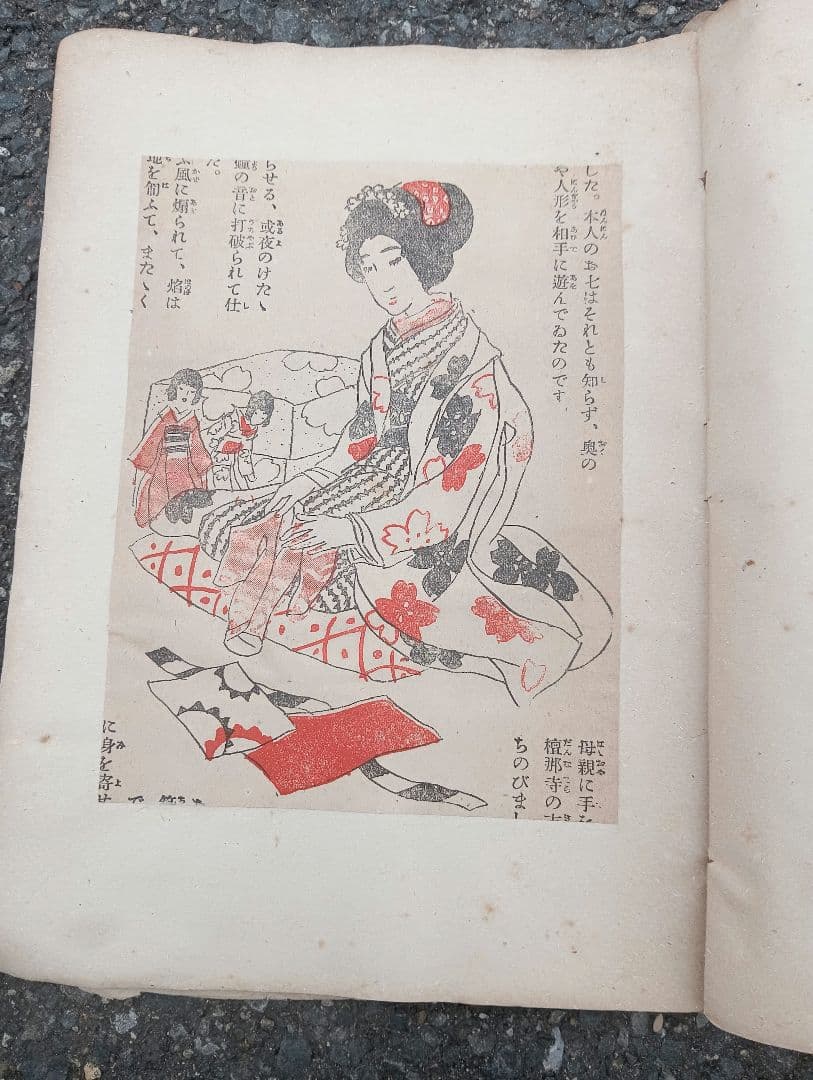 した。本人のお七はそれとも知らず、奥の
や人形を相手に遊んでゐたのです。
らせる、或夜のけたゝ
の音に打破られて仕
た。
風に煽られて、焔は
地を匍ふて、またゝく
母親に手を
檀那寺の
ちのびまし
で
に身を寄せ